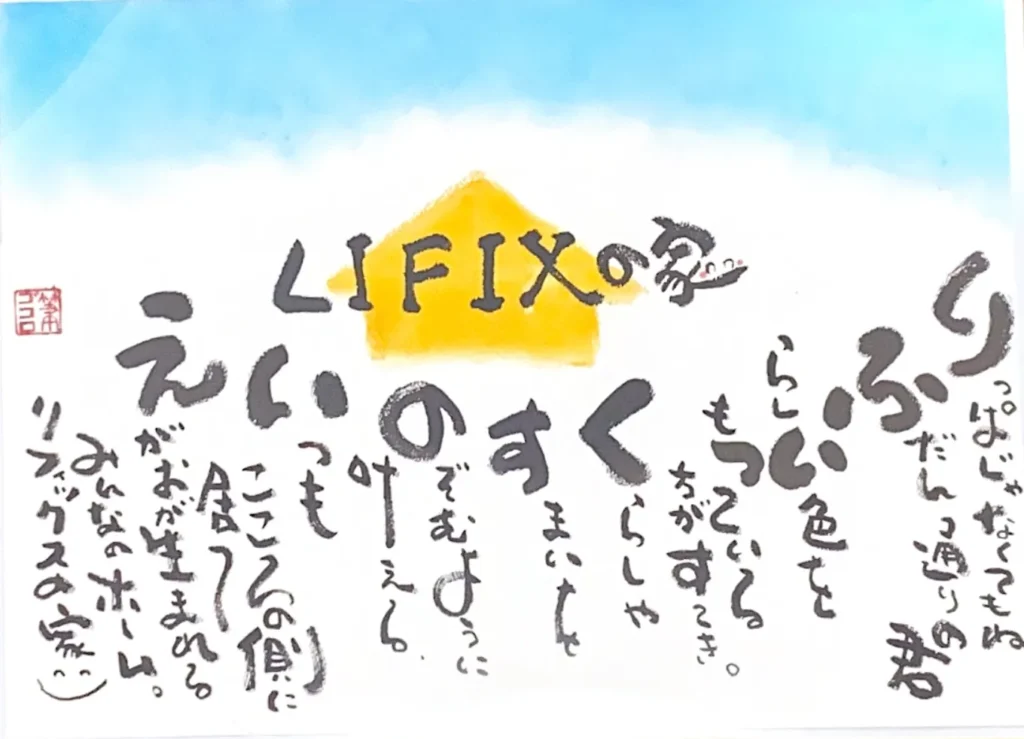 LIFIXの家
りっぱじゃなくてもね
ふだん通りの君
らしい色を
もっている
方がすてき。
くらしや
すまいも
のぞむように
叶える。
いつも
こころの側に
居て
えがおが生まれる
みんなのホーム。
リフィックスの家
筆ゴコロ